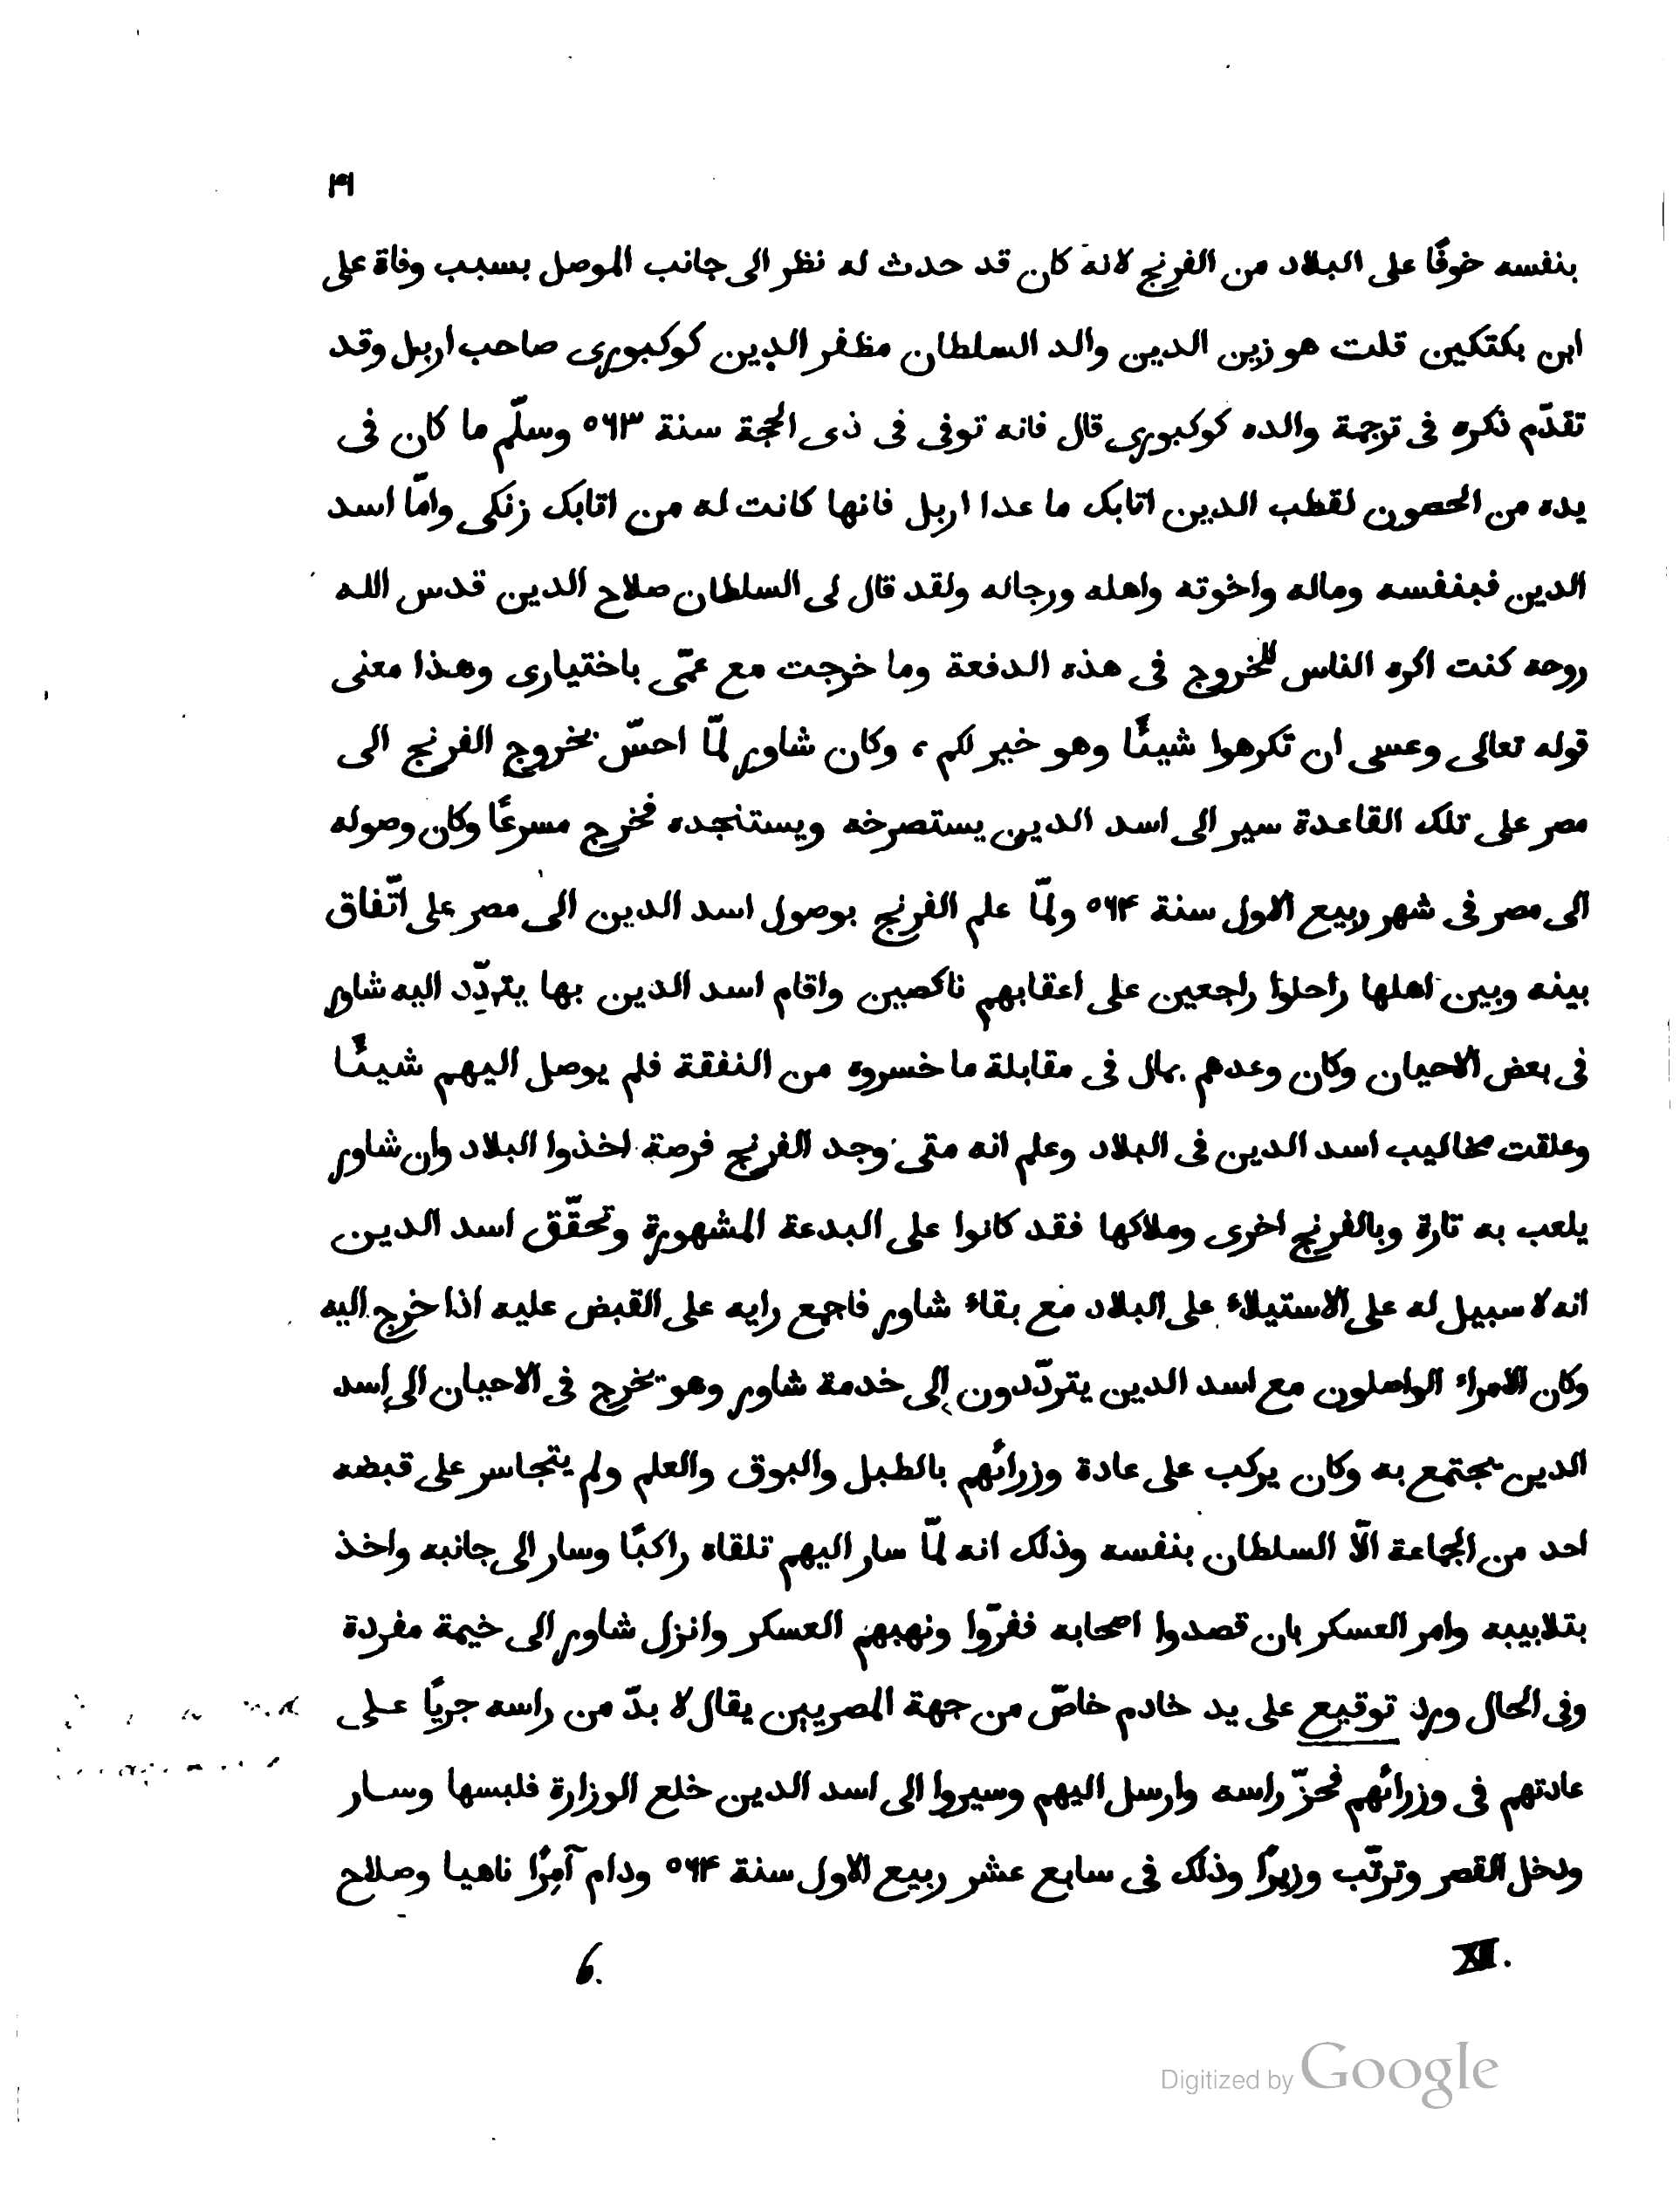 ۴۱
بنفسه خوفًا على البلاد من الفرنج لانه كان قد حدث له نظر الى جانب الموصل بسبب وفاة على
ابن بكتكين قلت هو زين الدين والد السلطان مظفر الدين كوكبورى صاحب اربل وقد
تقدّم ذكره فى ترجمة والده كوكبورى قال فانه توفى فى ذى الحجة سنة ٥٦٣ وسلّم ما كان فى
يده من الحصون لقطب الدين اتابك ما عدا اربل فانها كانت له من اتابك زنكى وامّا اسد
الدين فبنفسه وماله واخوته واهله ورجاله ولقد قال لى السلطان صلاح الدين قدس الله
روحه كنت اكره الناس للخروج فى هذه الدفعة وما خرجت مع عمّى باختيارى وهذا معنى
قوله تعالى وعسى ان تكرهوا شيئًا وهو خير لكم ، وكان شاور لمّا احسّ بخروج الفرنج الى
مصر على تلك القاعدة سير الى اسد الدين يستصرخه ويستنجده فخرج مسرعًا وكان وصوله
الى مصر فى شهر ربيع الاول سنة ٥٦۴ ولمّا علم الفرنج بوصول اسد الدين الى مصر على اتّفاق
بينه وبين اهلها راحلوا راجعين على اعقابهم ناكصين واقام اسد الدين بها يتردّد اليه شاور
فى بعض الاحيان وكان وعدهم بمال فى مقابلة ما خسروه من النفقة فلم يوصل اليهم شيئًا
وعلقت مخاليب اسد الدين فى البلاد وعلم انه متى وجد الفرنج فرصة اخذوا البلاد وان شاور
يلعب به تارة وبالفرنج اخرى وملاكها فقد كانوا على البدعة المشهورة وتحقّق اسد الدين
انه لا سبيل له على الاستيلاء على البلاد مع بقاء شاور فاجمع رايه على القبض عليه اذا خرج اليه
وكان الامراء الواصلون مع اسد الدين يتردّدون الى خدمة شاور وهو يخرج فى الاحيان الى اسد
الدين يجتمع به وكان يركب على عادة وزرائهم بالطبل والبوق والعلم ولم يتجاسر على قبضه
احد من الجماعة الّا السلطان بنفسه وذلك انه لمّا سار اليهم تلقاه راكبًا وسار الى جانبه واخذ
بتلابيبه وامر العسكر بان قصدوا اصحابه ففرّوا ونهبهم العسكر وانزل شاور الى خيمة مفردة
وفى الحال ورد توقيع على يد خادم خاصّ من جهة المصريين يقال لا بدّ من راسه جريًا على
عادتهم فى وزرائهم فحزّ راسه وارسل اليهم وسيروا الى اسد الدين خلع الوزارة فلبسها وسار
ودخل القصر وترتّب وزيرًا وذلك فى سابع عشر ربيع الاول سنة ٥٦۴ ودام آمِرًا ناهيا وصلاح
XII. 6.
Digitized by Google